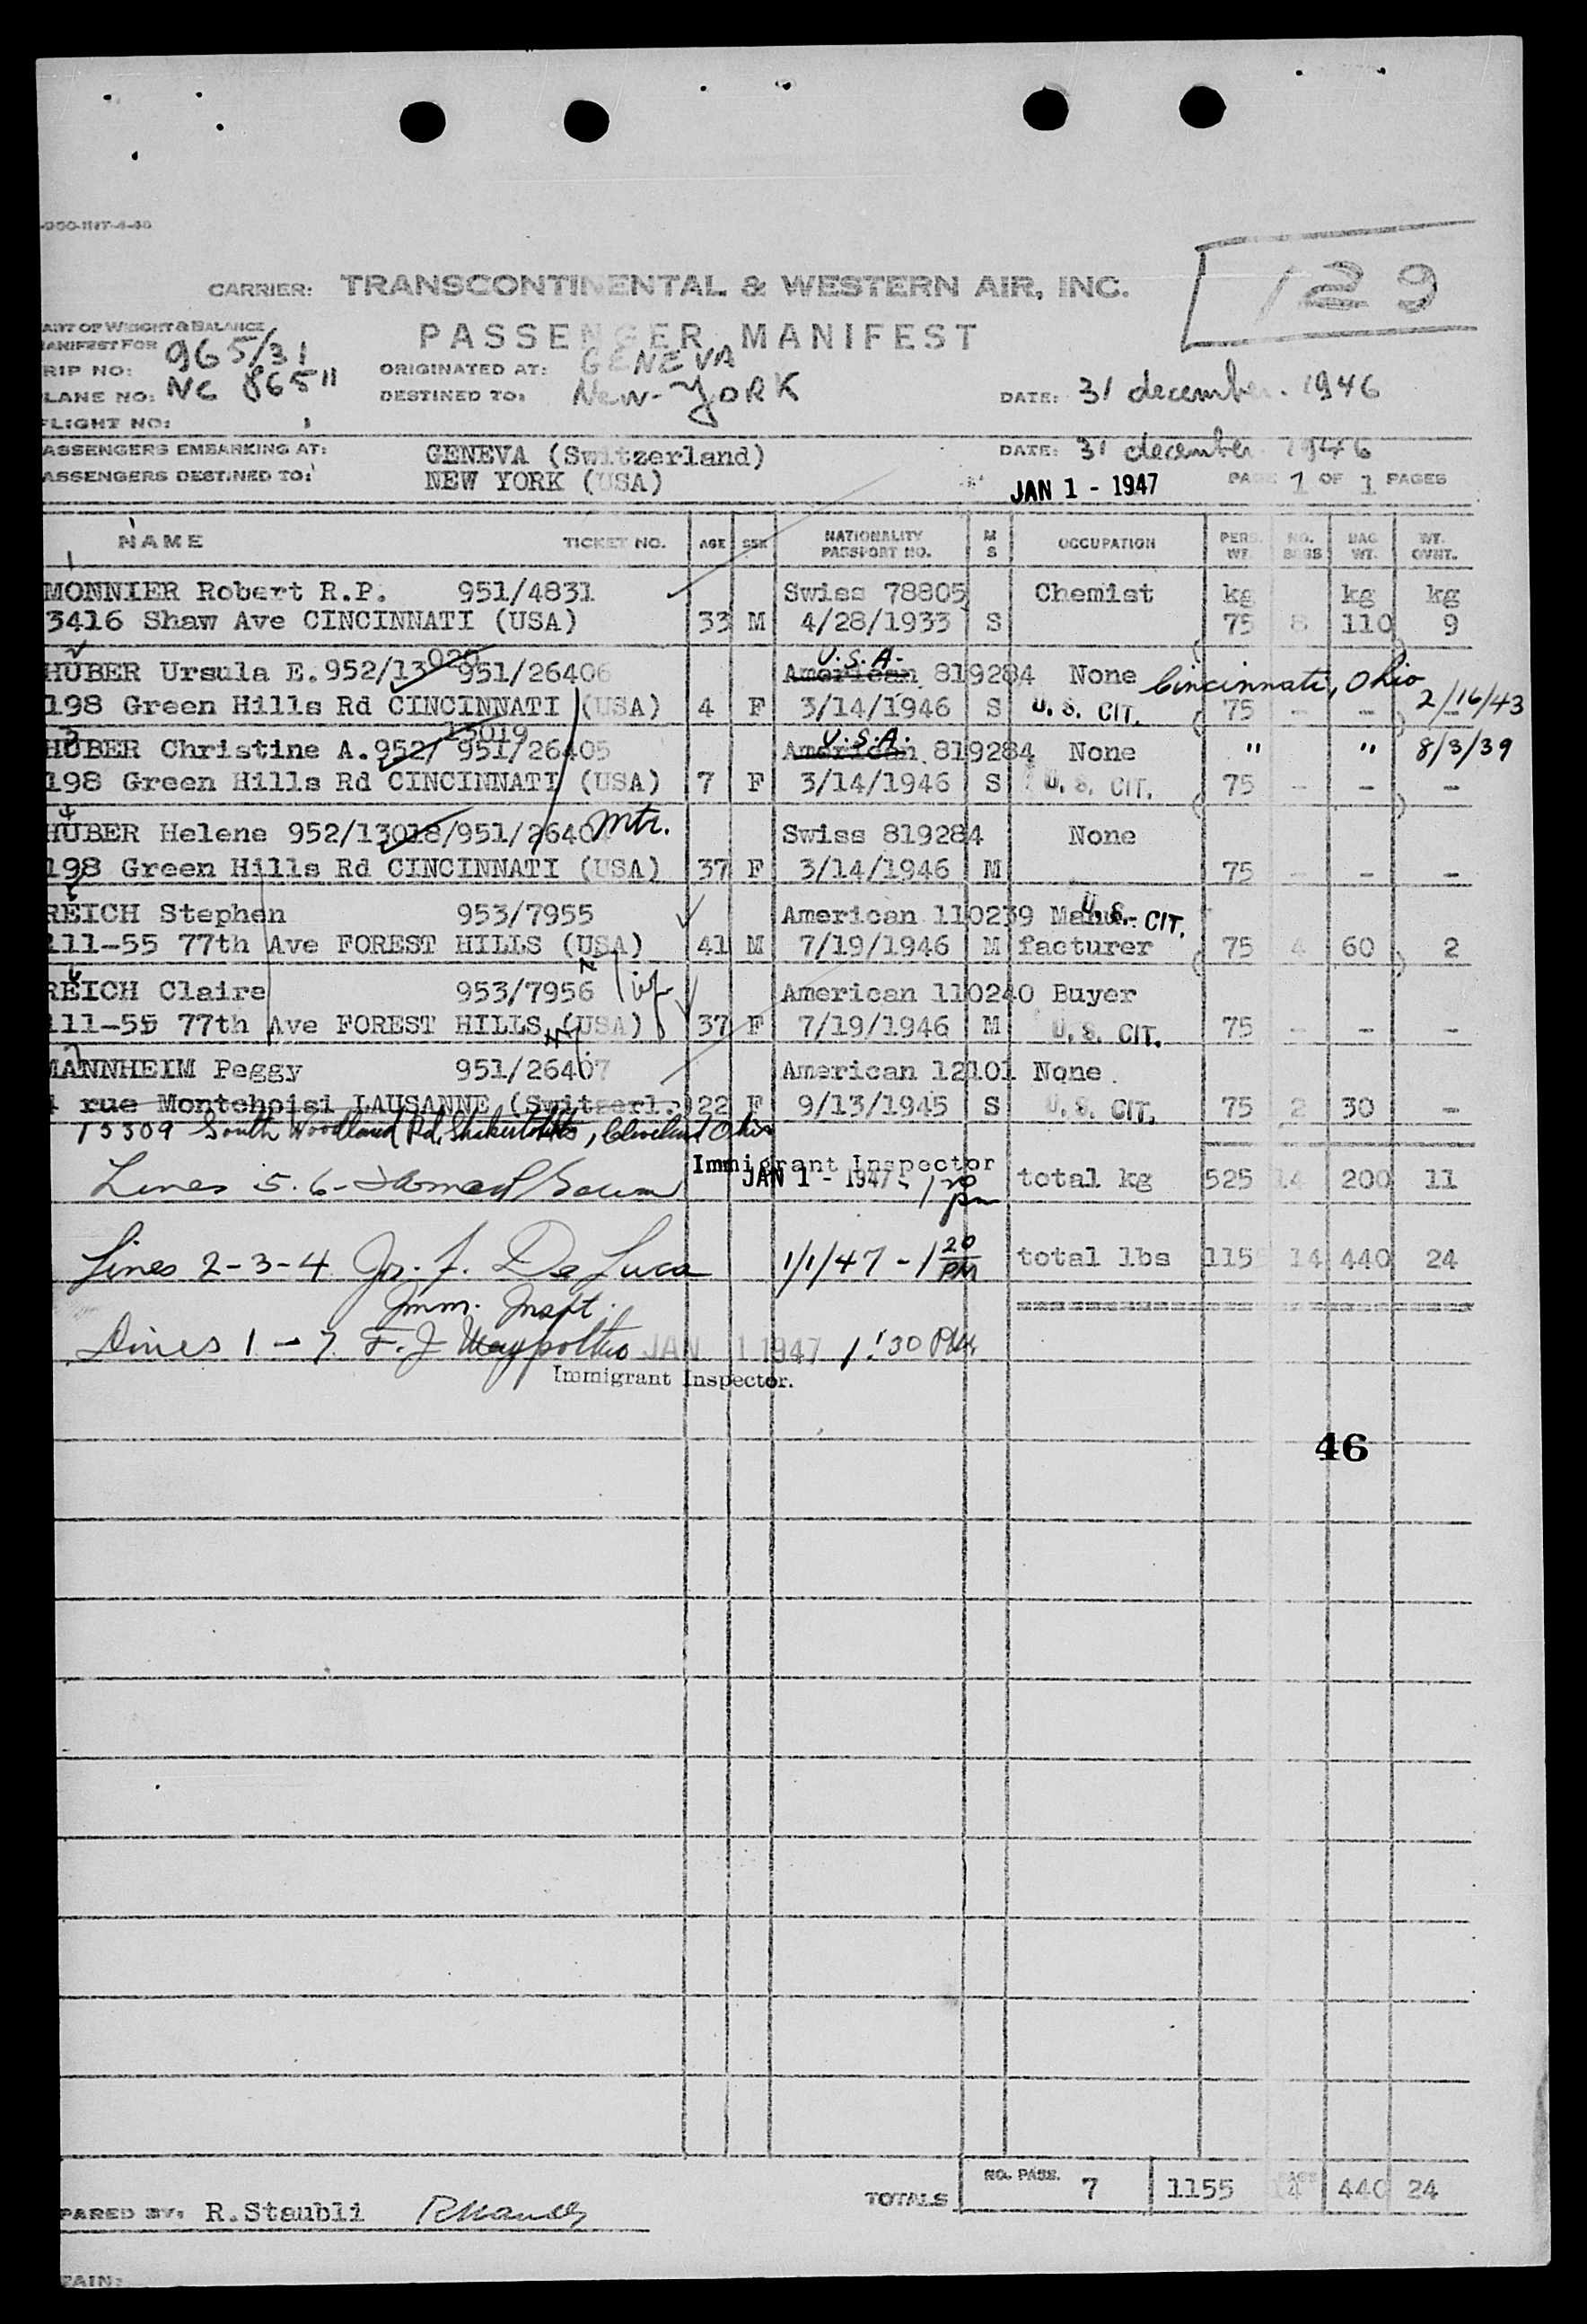 -900-INT-4-46
CARRIER: TRANSCONTINENTAL & WESTERN AIR, INC.
129
PASSENGER MANIFEST
ART OF WEIGHT & BALANCE
MANIFEST FOR
RIP NO: 965/31
ORIGINATED AT: GENEVA
LANE NO: NC 86511
DESTINED TO: New-York
DATE: 31 december. 1946
FLIGHT NO:
ASSENGERS EMBARKING AT: GENEVA (Switzerland)
DATE: 31 december 1946
ASSENGERS DESTINED TO: NEW YORK (USA)
JAN 1 - 1947
PAGE 1 OF 1 PAGES
NAME TICKET NO. AGE SEX NATIONALITY PASSPORT NO. M S OCCUPATION PERS. WT. NO. BAGS BAG WT. WT. OVHT.
1
MONNIER Robert R.P. 951/4831 Swiss 78805 Chemist kg kg kg
3416 Shaw Ave CINCINNATI (USA) 33 M 4/28/1933 S 75 8 110 9
020 U.S.A.
HUBER Ursula E. 952/13 951/26406 American 819284 None Cincinnati, Ohio
198 Green Hills Rd CINCINNATI (USA) 4 F 3/14/1946 S U. S. CIT. 75 - - - 2/16/43
3 13019 U.S.A.
HUBER Christine A. 952/ 951/26405 American 819284 None " " 8/3/39
198 Green Hills Rd CINCINNATI (USA) 7 F 3/14/1946 S U. S. CIT. 75 - - -
4
HUBER Helene 952/13018/951/26404 Mtr. Swiss 819284 None
198 Green Hills Rd CINCINNATI (USA) 37 F 3/14/1946 M 75 - - -
5
REICH Stephen 953/7955 American 110239 Manu- U. S. CIT.
111-55 77th Ave FOREST HILLS (USA) 41 M 7/19/1946 M facturer 75 4 60 2
6
REICH Claire 953/7956 American 110240 Buyer
111-55 77th Ave FOREST HILLS (USA) 37 F 7/19/1946 M U. S. CIT. 75 - - -
7
MANNHEIM Peggy 951/26407 American 12101 None
4 rue Montchoisi LAUSANNE (Switzerl. 22 F 9/13/1945 S U. S. CIT. 75 2 30 -
15509 South Woodland Rd, Cleveland Ohio
Immigrant Inspector
Lines 5. 6- JAN 1 - 1947 - 1 20 pm total kg 525 14 200 11
Lines 2-3-4 De Luca 1/1/47 - 1 20 PM total lbs 1155 14 440 24
Imm. Inspt.
Lines 1 - 7 F. J. JAN 1 1947 1:30 PM
Immigrant Inspector.
46
TOTALS NO. PASS. 7 1155 14 440 24
PARED BY: R.Staubli
TAIN: